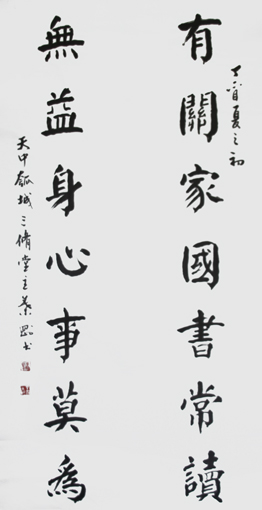 有關家國書常讀
丁酉夏之初
無益身心事莫為
天中瓠城三脩堂主蔡
書